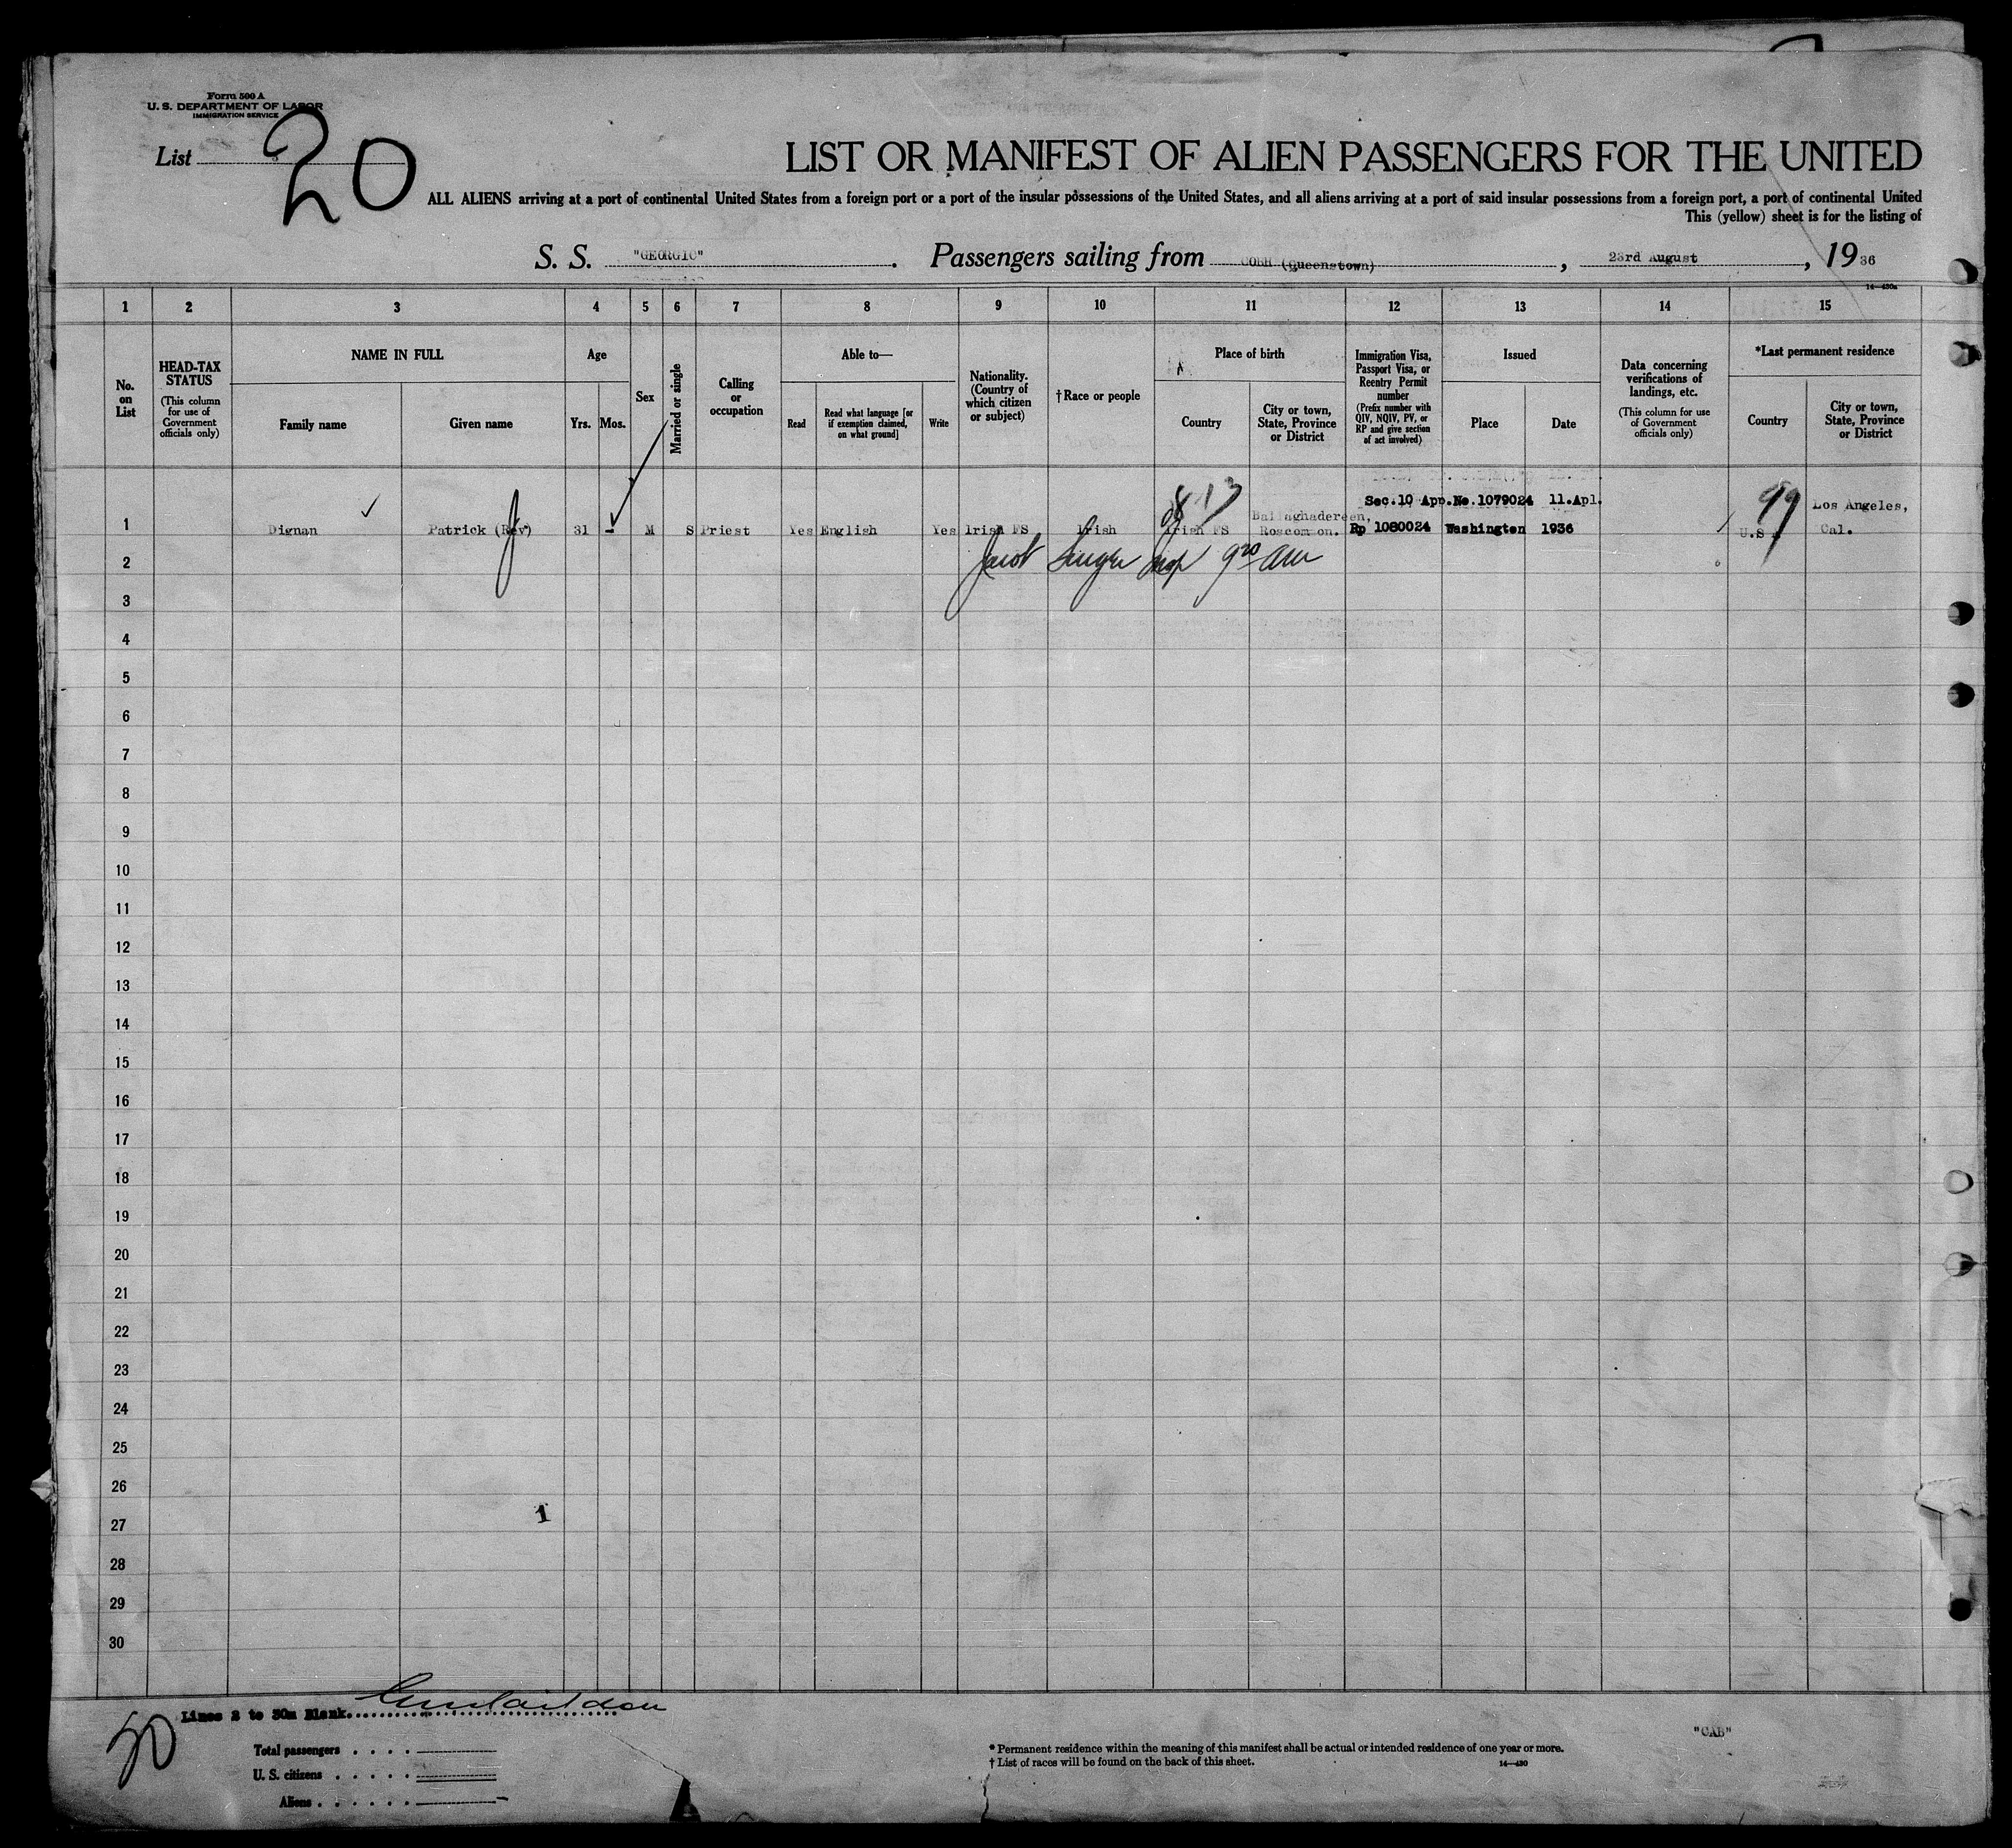 Form 500 A
U. S. DEPARTMENT OF LABOR
IMMIGRATION SERVICE
List 20
LIST OR MANIFEST OF ALIEN PASSENGERS FOR THE UNITED
ALL ALIENS arriving at a port of continental United States from a foreign port or a port of the insular possessions of the United States, and all aliens arriving at a port of said insular possessions from a foreign port, a port of continental United
This (yellow) sheet is for the listing of
S. S. "GEORGIC". Passengers sailing from COBH (Queenstown), 23rd August, 1936
14—430a
1 2 3 4 5 6 7 8 9 10 11 12 13 14 15
No. on List
HEAD-TAX STATUS
(This column for use of Government officials only)
NAME IN FULL
Family name
Given name
Age
Yrs.
Mos.
Sex
Married or single
Calling or occupation
Able to—
Read
Read what language [or if exemption claimed, on what ground]
Write
Nationality. (Country of which citizen or subject)
†Race or people
Place of birth
Country
City or town, State, Province or District
Immigration Visa, Passport Visa, or Reentry Permit number
(Prefix number with QIV, NQIV, PV, or RP and give section of act involved)
Issued
Place
Date
Data concerning verifications of landings, etc.
(This column for use of Government officials only)
*Last permanent residence
Country
City or town, State, Province or District
Sec.10 App.No.1079024 11.Apl. 99 Los Angeles,
Ballaghadereen,
1 Dignan Patrick (Rev) 31 - M S Priest Yes English Yes Irish FS Irish Irish FS Roscommon. Rp 1080024 Washington 1936 U.S. Cal.
2
3
4
5
6
7
8
9
10
11
12
13
14
15
16
17
18
19
20
21
22
23
24
25
26
27 1
28
29
30
Lines 2 to 30m Blank
Total passengers
U. S. citizens
Aliens
* Permanent residence within the meaning of this manifest shall be actual or intended residence of one year or more.
† List of races will be found on the back of this sheet.
14—430
"CAB"